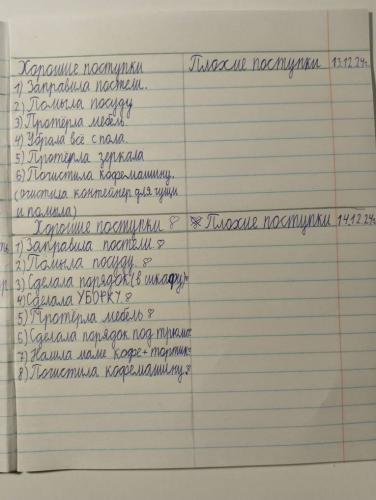 Хорошие поступки Плохие поступки 13.12.24г.
1) Заправила постели.
2) Помыла посуду
3) Протёрла мебель.
4) Убрала всё с пола.
5) Протёрла зеркала
6) Почистила кофемашину.
(очистила контейнер для гущи
и помыла)
Хорошие поступки Плохие поступки 14.12.24г
1) Заправила постели.
2) Помыла посуду.
3) Сделала порядок (в шкафу)
4) Сделала УБОРКУ.
5) Протёрла мебель
6) Сделала порядок под
7) Нашла маме кофе + тортик
8) Почистила кофемашину.